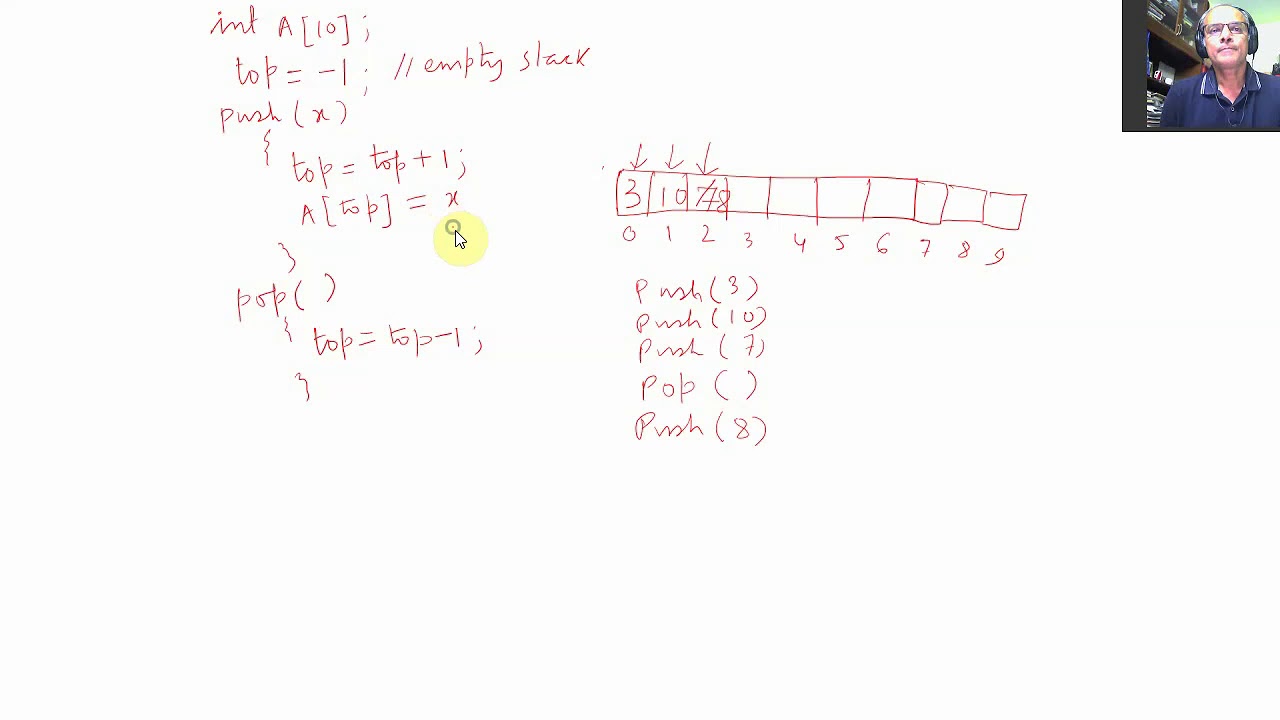 int A[10];
top = -1; // empty stack
push(x)
{
top = top + 1;
A[top] = x
}
pop( )
{ top = top-1;
}
3 10 7 8
0 1 2 3 4 5 6 7 8 9
Push(3)
Push(10)
Push(7)
Pop( )
Push(8)